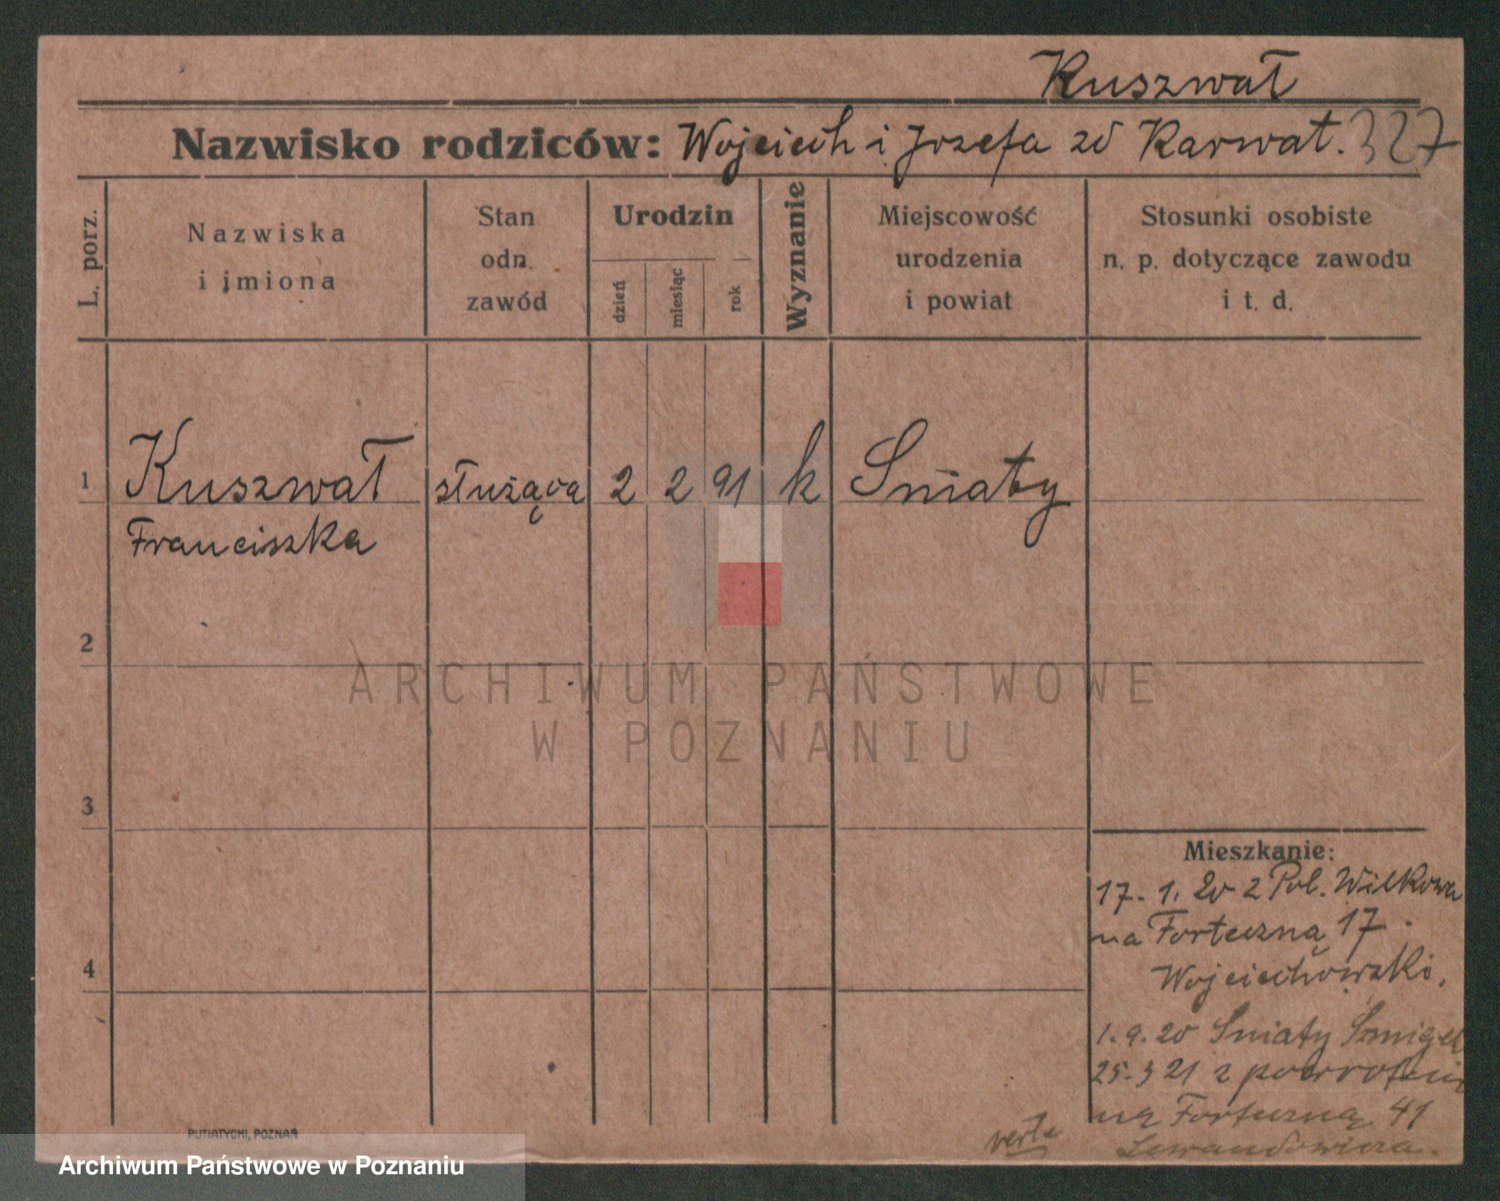 Kuszwał
Nazwisko rodziców: Wojciech i Jozefa zd Karwat. 327
L. porz.
Nazwiska
i imiona
Stan
odn.
zawód
Urodzin
dzień
miesiąc
rok
Wyznanie
Miejscowość
urodzenia
i powiat
Stosunki osobiste
n. p. dotyczące zawodu
i t. d.
1 Kuszwał służąca 2 2 91 k Śniaty
Franciszka
2
ARCHIWUM PAŃSTWOWE
W POZNANIU
3
Mieszkanie:
17. 1. 20 z Pol. Wilkowa
na Forteczną 17.
4
Wojciechowski.
1.9.20 Śniaty Śmigel
25.3 21 z
na Forteczną 41
Lewandowicza.
verte
PUTIATYCKI, POZNAŃ
Archiwum Państwowe w Poznaniu